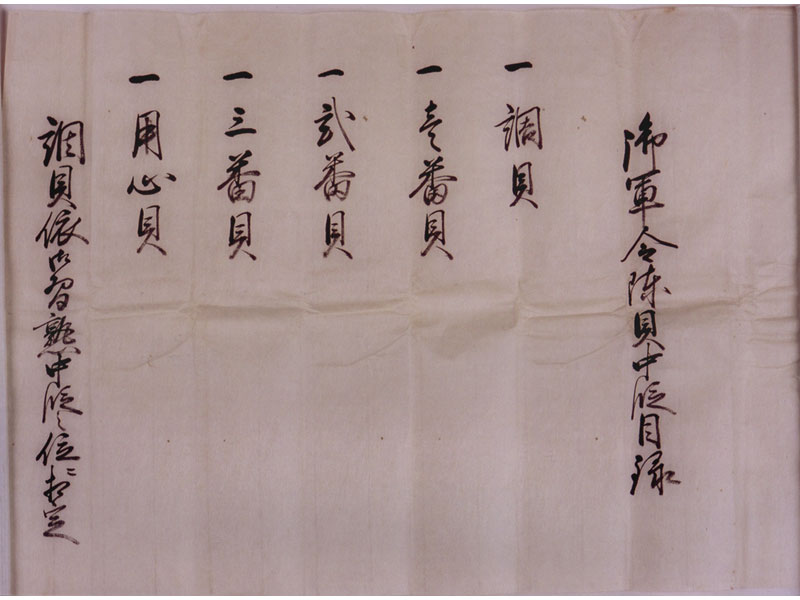 御軍令陣貝中段目録
一調貝
一壱番貝
一弐番貝
一三番貝
一用心貝
調貝依御習熟中段之位ニ相定